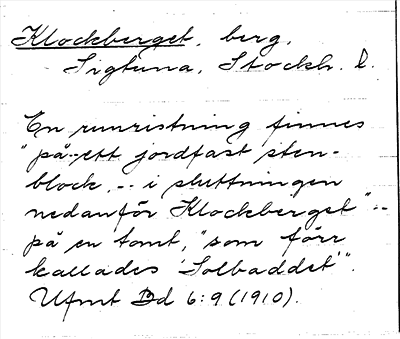 Klockberget, berg,
Sigtuna, Stockh. l.
En runristning finnes
"på--ett jordfast sten-
block, -- i sluttningen
nedanför Klockberget" --
på en tomt, "som förr
kallades 'Solbaddet'".
Ufmt Bd 6:9 (1910).